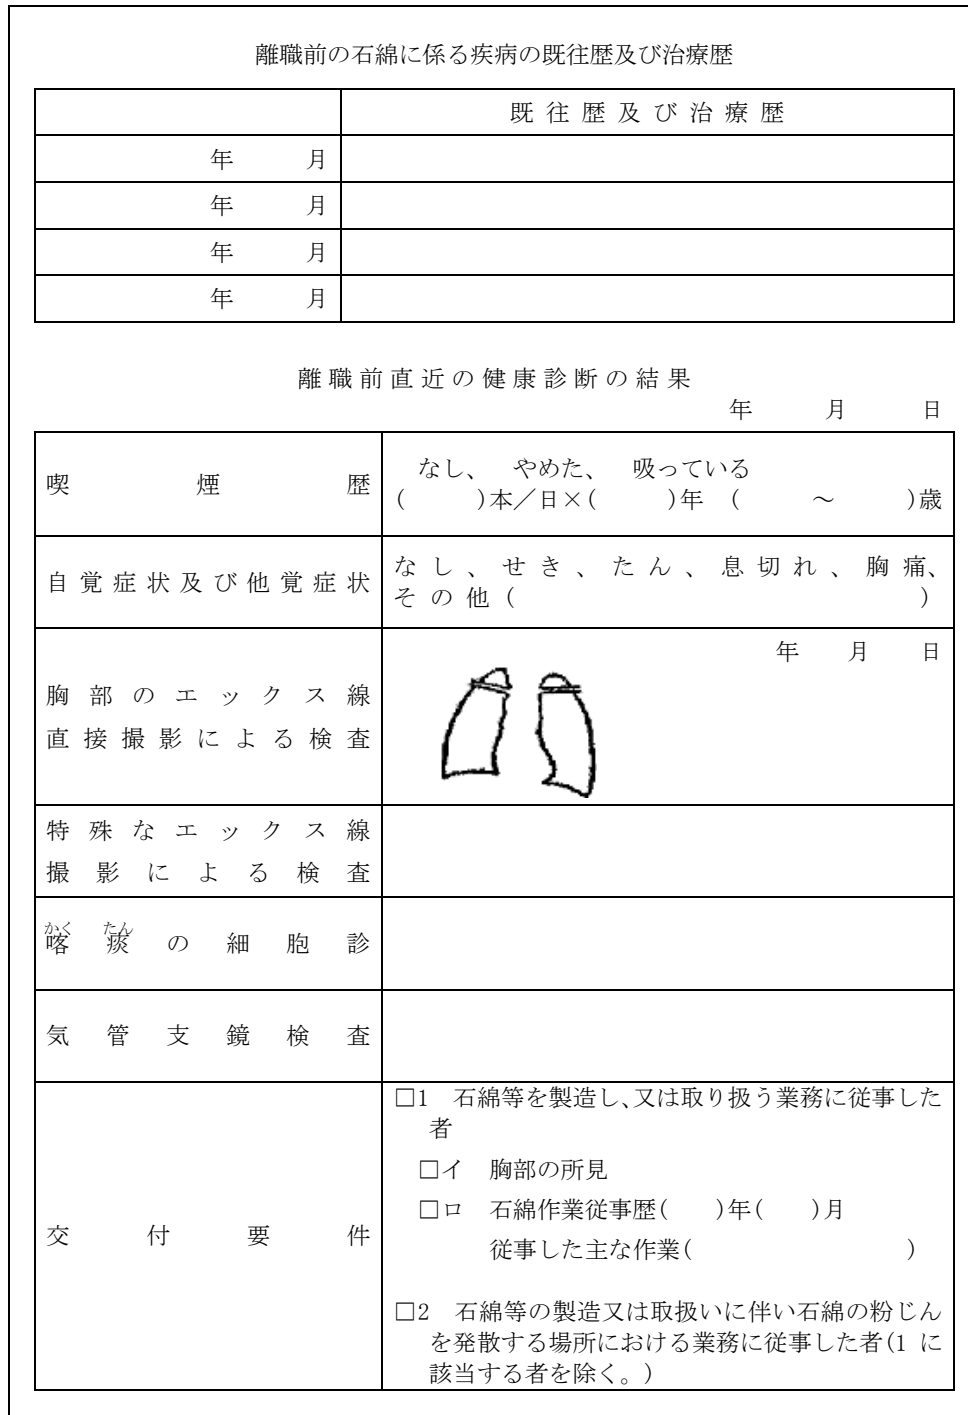 離職前の石綿に係る疾病の既往歴及び治療歴
既往歴及び治療歴
年 月
年 月
年 月
年 月
離職前直近の健康診断の結果
年 月 日
喫煙歴
なし、 やめた、 吸っている
( )本／日×( )年 ( ～ )歳
自覚症状及び他覚症状
なし、せき、たん、息切れ、胸痛、
その他( )
胸部のエックス線
直接撮影による検査
年 月 日
特殊なエックス線
撮影による検査
かく たん
喀痰の細胞診
気管支鏡検査
交付要件
□1 石綿等を製造し、又は取り扱う業務に従事した
者
□イ 胸部の所見
□ロ 石綿作業従事歴( )年( )月
従事した主な作業( )
□2 石綿等の製造又は取扱いに伴い石綿の粉じん
を発散する場所における業務に従事した者(1 に
該当する者を除く。)